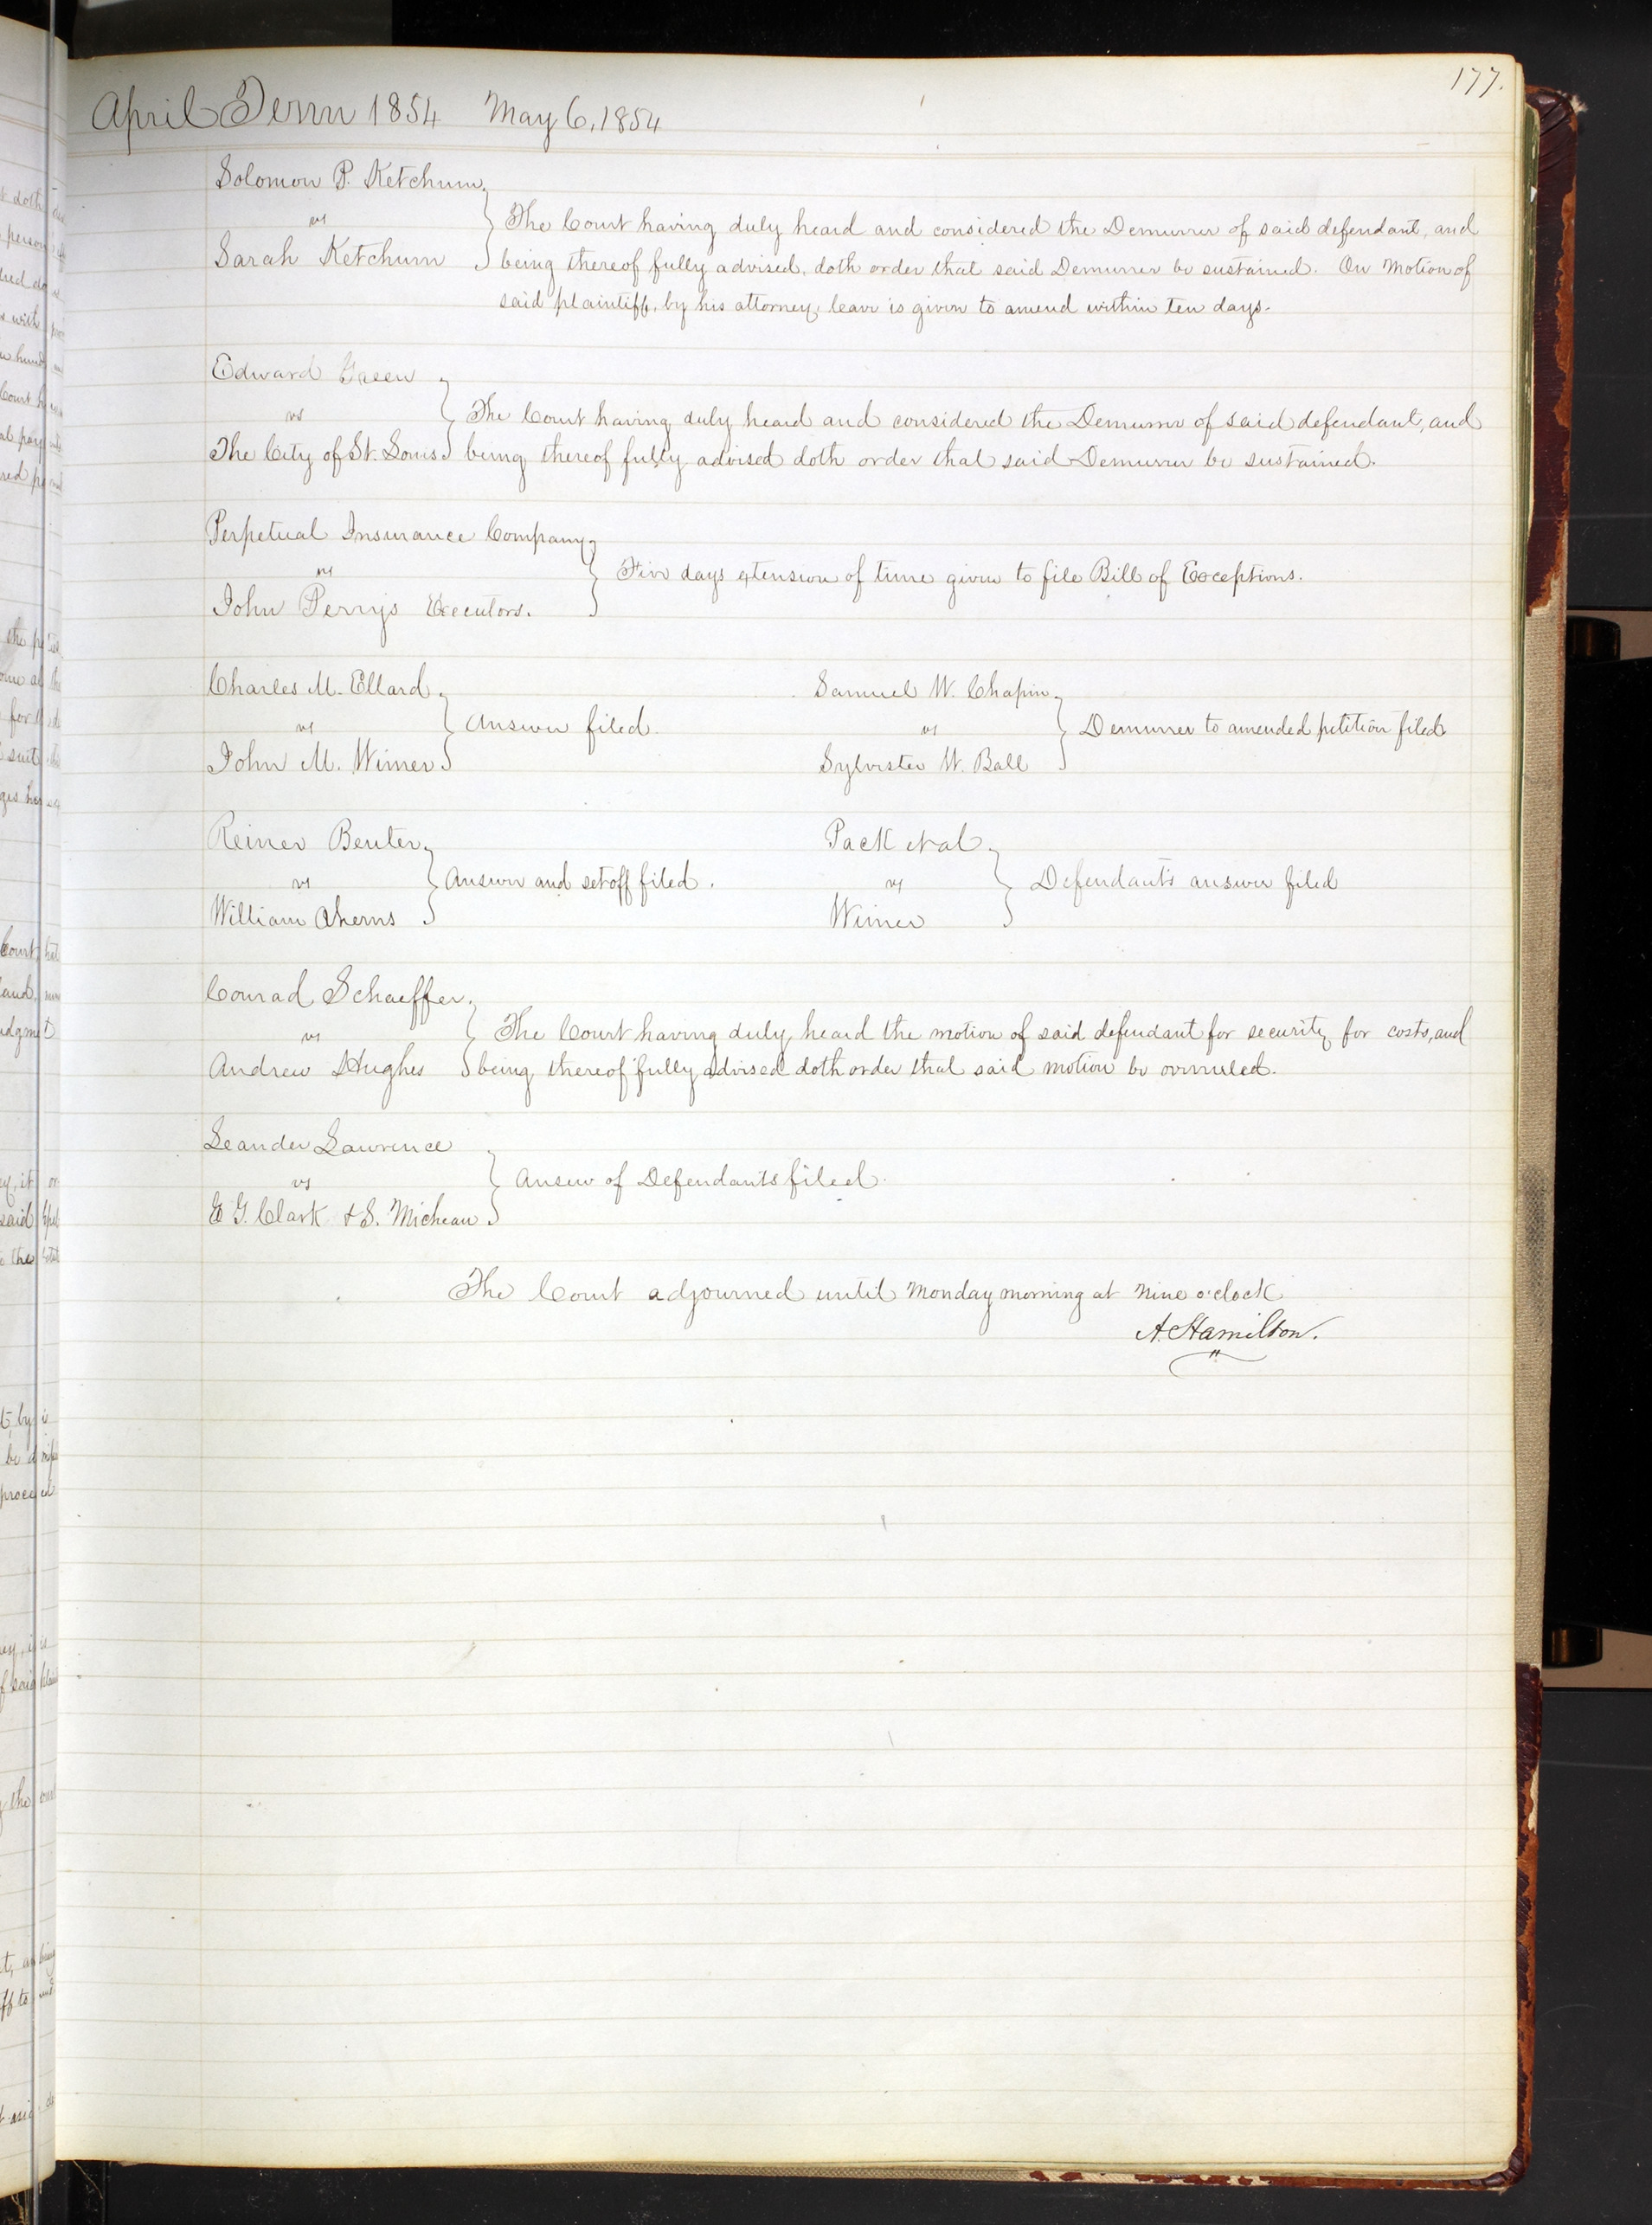 177.
April Term 1854 May 6, 1854
Solomon P. Ketchum
vs
The Court having duly heard and considered the Demurrer of said defendant, and
Sarah Ketchum being thereof fully advised, doth order that said Demurrer be sustained. On Motion of
said plaintiff, by his attorney, leave is given to amend within ten days.
Edward Green
vs
The Court having duly heard and considered the Demurrer of said defendant, and
The City of St. Louis being thereof fully advised doth order that said Demurrer be sustained.
Perpetual Insurance Company
vs
Five days extension of time given to file Bill of Exceptions.
John Perrys Executors.
Charles M. Ellard
vs
Answer filed.
John M. Wimer
Samuel W. Chapin
vs
Demurrer to amended petition filed
Sylvester W. Ball
Reiner Beuter
vs
Answer and setoff filed.
William Aherns
Pack et al
vs
Defendants answer filed
Wimer
Conrad Schaeffer
vs
The Court having duly heard the motion of said defendant for security for costs, and
Andrew Hughes being thereof fully advised doth order that said motion be overruled.
Leander Lawrence
vs
Answer of Defendants filed.
E G. Clark & S. Micheau
The Court adjourned until Monday morning at nine o'clock
A. Hamilton.